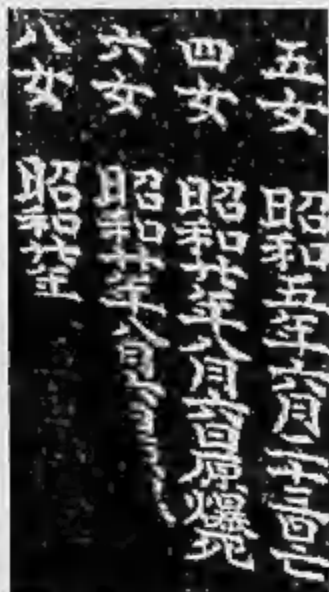 五女　昭和五年六月二十三日亡
四女　昭和廿年八月六日原爆死
六女　昭和廿年八月
八女　昭和廿年